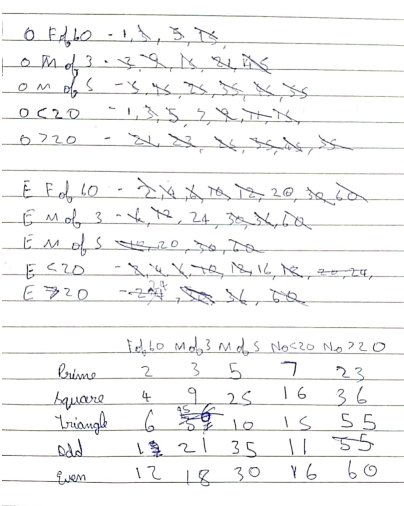 O F of 60 - 1, 3, 5, 15,
O M of 3 - 3, 9, 15, 21, 45
O M of 5 - 5, 15, 25, 35, 45, 55
O < 20 - 1, 3, 5, 7, 9, 11, 15,
O > 20 - 21, 23, 25, 35, 45, 55
E F of 60 - 2, 4, 6, 10, 12, 20, 30, 60
E M of 3 - 6, 12, 24, 30, 36, 60
E M of 5 20, 30, 60
E < 20 - 2, 4, 6, 10, 12, 16, 18, 20, 24,
E > 20 - 24, 30, 36, 60
F of 60 M of 3 M of 5 No < 20 No > 20
Prime 2 3 5 7 23
Square 4 9 25 16 36
Triangle 6 45 10 15 55
Odd 1 21 35 11 55
Even 12 18 30 16 60